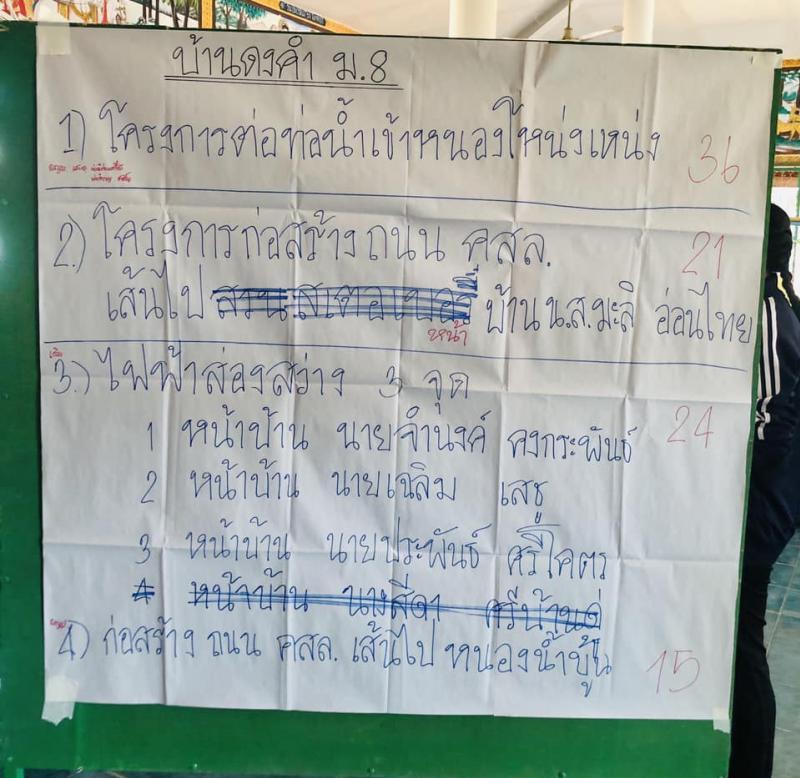 บ้านดงคำ ม.8
1) โครงการต่อท่อน้ำเข้าหนองโหน่งเหน่ง 36
2) โครงการก่อสร้างถนน คสล. 21
เส้นไป บ้าน น.ส.มะลิ อ่อนไทย
หน้า
3.) ไฟฟ้าส่องสว่าง 3 จุด 24
1 หน้าบ้าน นายจำนงค์ คงกระพันธ์
2 หน้าบ้าน นายเฉลิม เสธู
3 หน้าบ้าน นายประพันธ์ ศรีโคตร
4 หน้าบ้าน นางสีดา
4) ก่อสร้าง ถนน คสล. เส้นไป หนองน้ำขุ้น 15